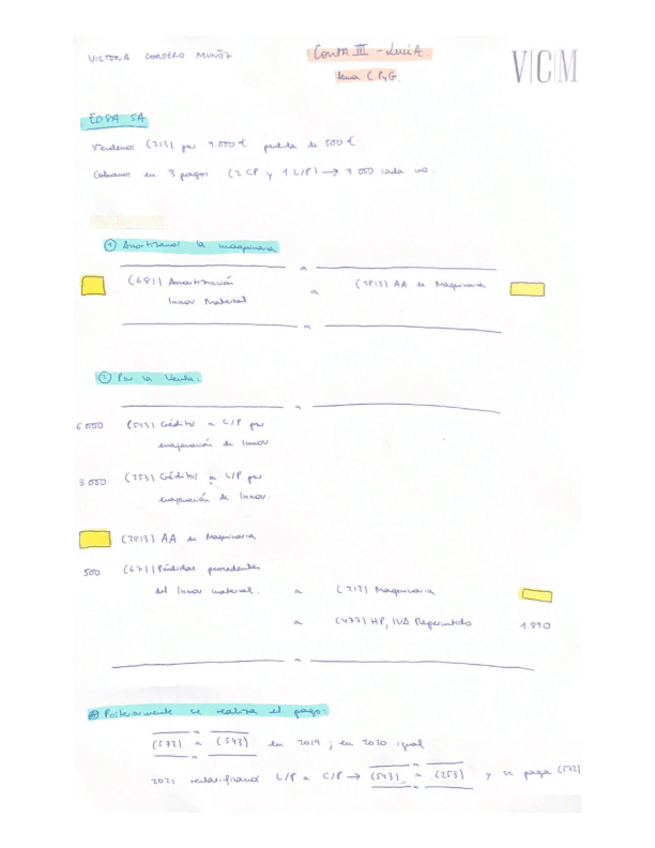 VICTORIA CORDERO MUÑOZ
CONTA III - Lucía.
tema C.PyG.
V|C|M
EDSA SA
Vendemos (213) por 9.000 € perdida de 500 €
Cobramos en 3 pagos (2 CP y 1 L/P) → 3 000 cada uno.
① Amortizamos la maquinaria
a
(681) Amortización a (2813) AA de Maquinaria
Inmov Material
a
② Por la Venta:
a
6 000 (543) Créditos a C/P por
enajenación de Inmov
3.000 (253) Créditos a L/P por
enajenación de Inmov.
(2813) AA de Maquinaria
500 (671) Pérdidas procedentes
del Inmov material. a (213) Maquinaria
a (477) HP, IVA Repercutido 1.890
a
Posteriormente se realiza el pago:
(572) a (543) en 2019 ; en 2020 igual
2021 reclasificamos L/P a C/P → (543) a (253) y se paga (572)